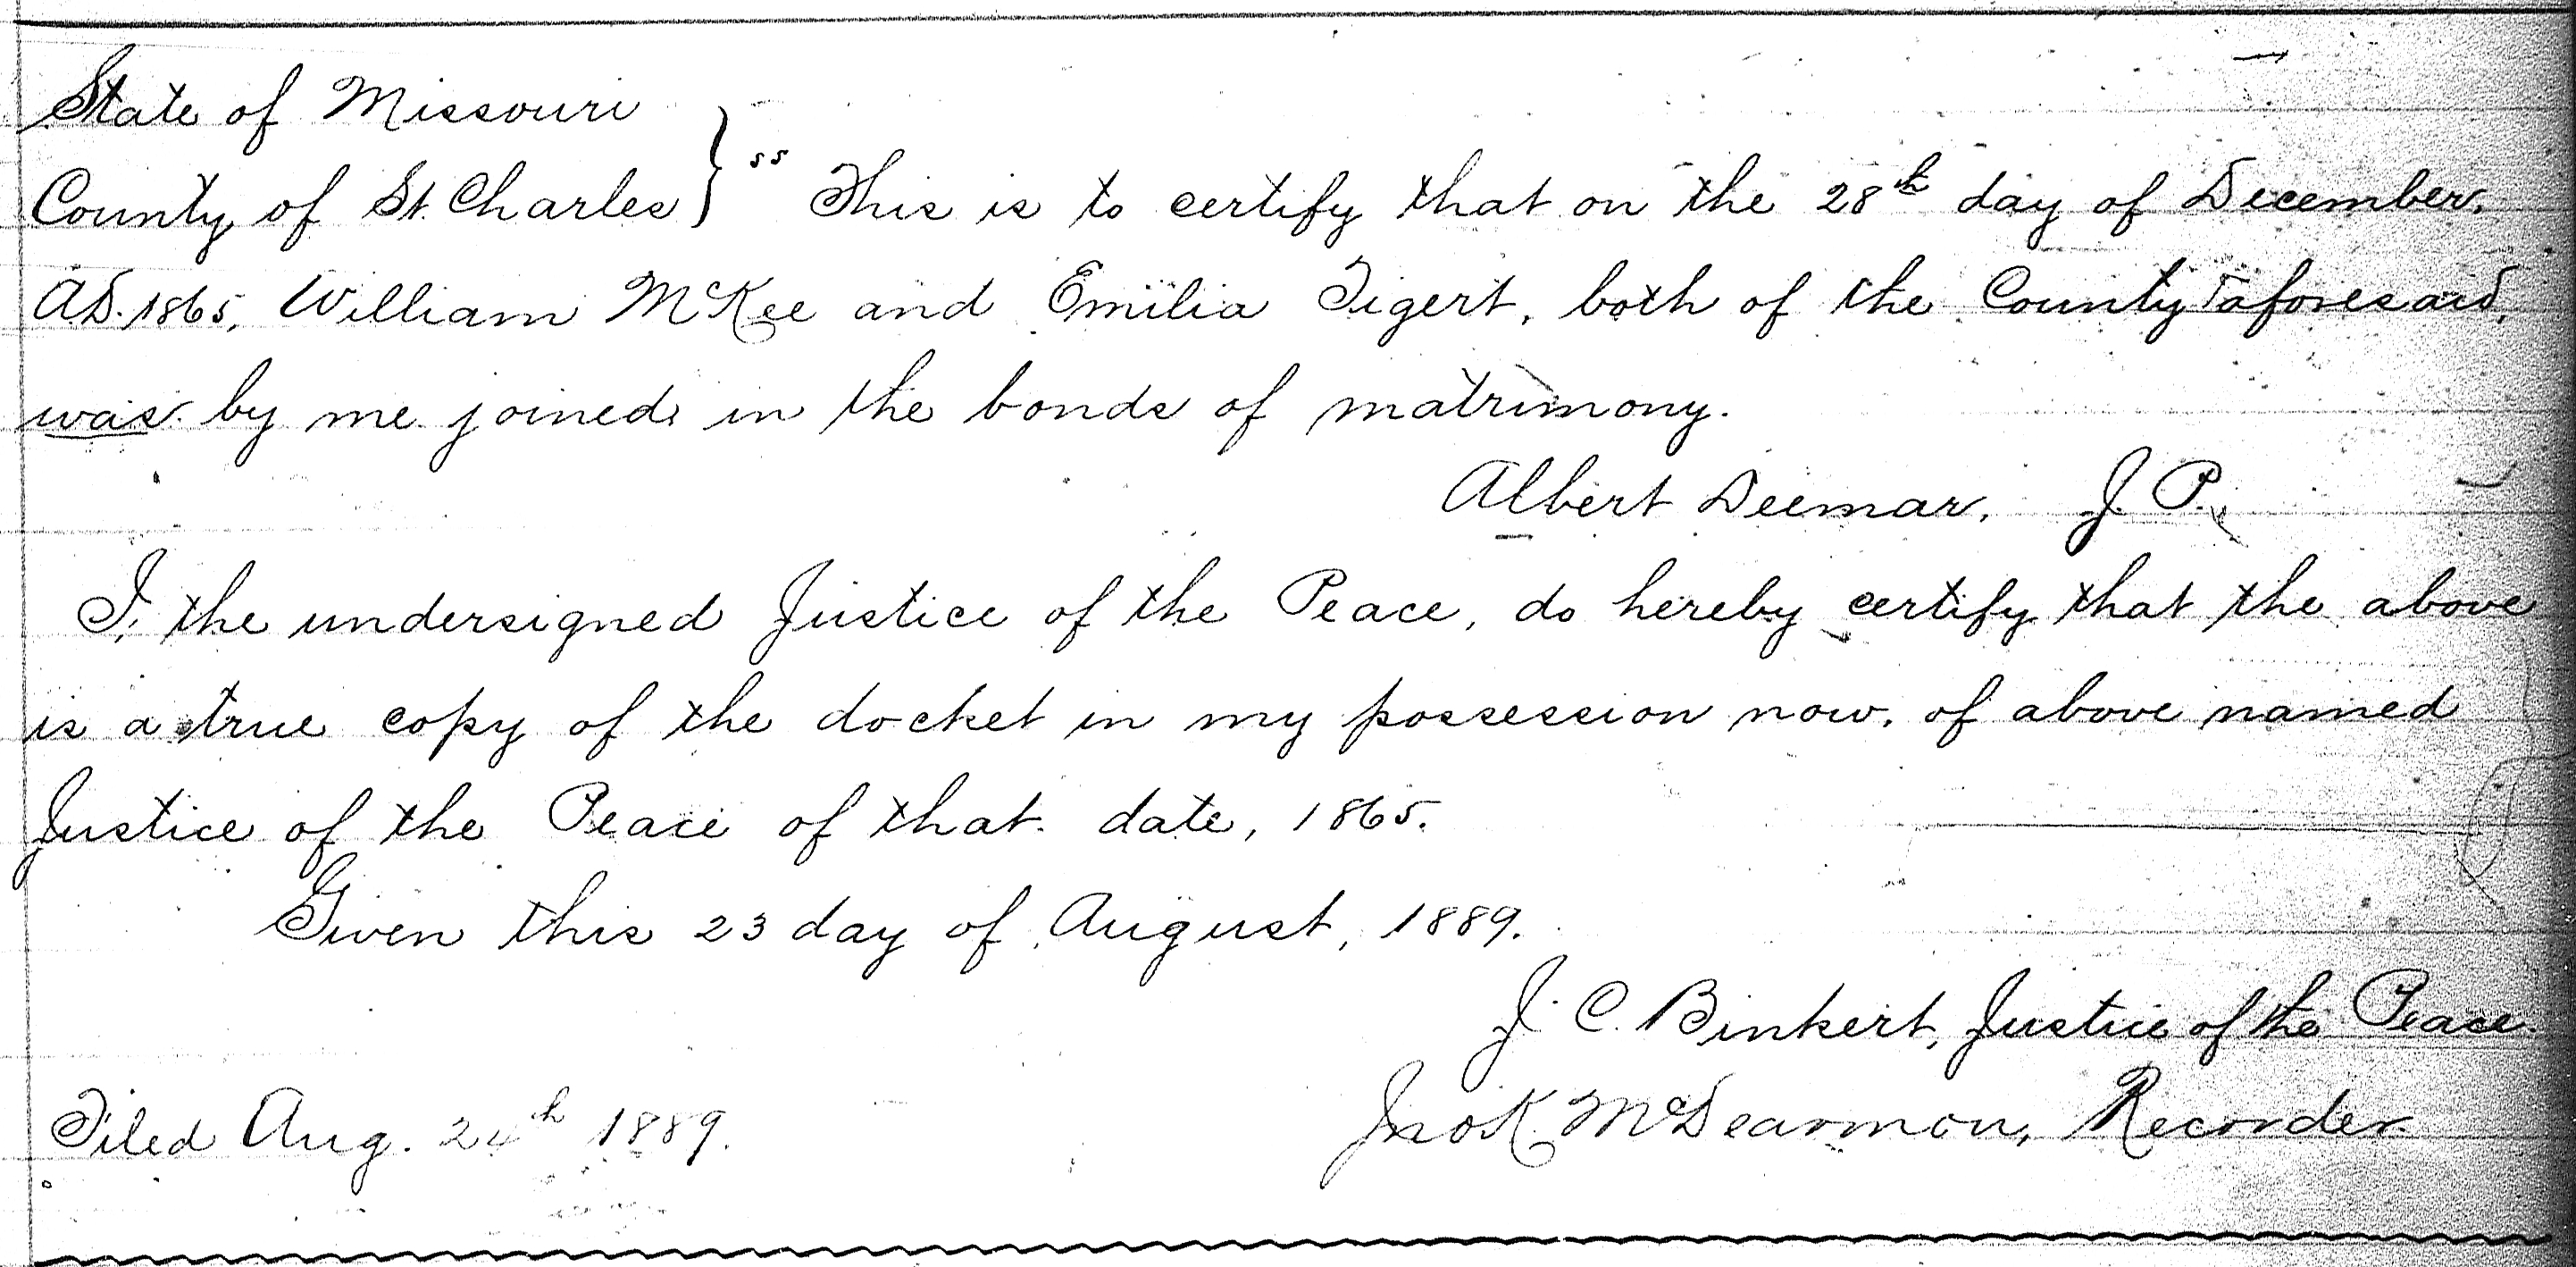 State of Missouri
County of St. Charles } ss This is to certify that on the 28th day of December,
A.D. 1865, William McKee and Emilia Tigert, both of the County aforesaid,
was by me joined in the bonds of matrimony.
Albert Deemar, J. P.
I, the undersigned Justice of the Peace, do hereby certify that the above
is a true copy of the docket in my possession now, of above named
Justice of the Peace of that date, 1865.
Given this 23 day of August, 1889.
J. C. Binkert, Justice of the Peace.
Filed Aug. 24th 1889. Jno K. McDearmon, Recorder